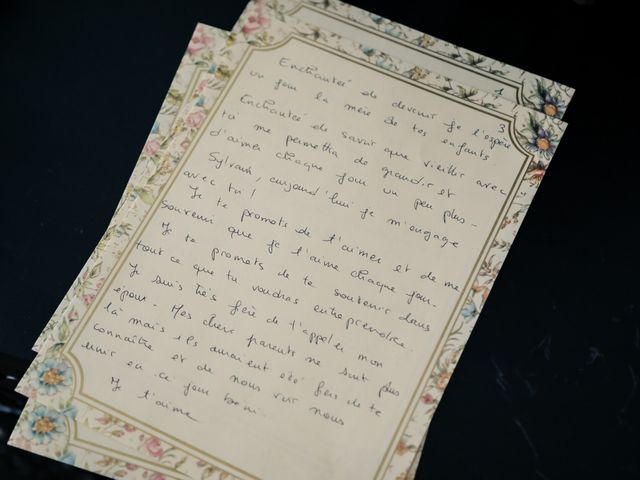 1
3
Enchantée de devenir je l'espère
un jour la mère de tes enfants.
Enchantée de savoir que vieillir avec
tu me permettra de grandir et
d'aimer chaque jour un peu plus -
Sylvain, aujourd'hui je m'engage
avec tui !
Je te promets de t'aimer et de me
souvenir que je t'aime chaque jour.
Je te promets de te soutenir dans
tout ce que tu voudras entreprendre.
Je suis très fière de t'appeler mon
époux. Mes chers parents ne sont plus
là mais ils auraient été fiers de te
connaître et de nous voir nous
unir en ce jour béni.
Je t'aime